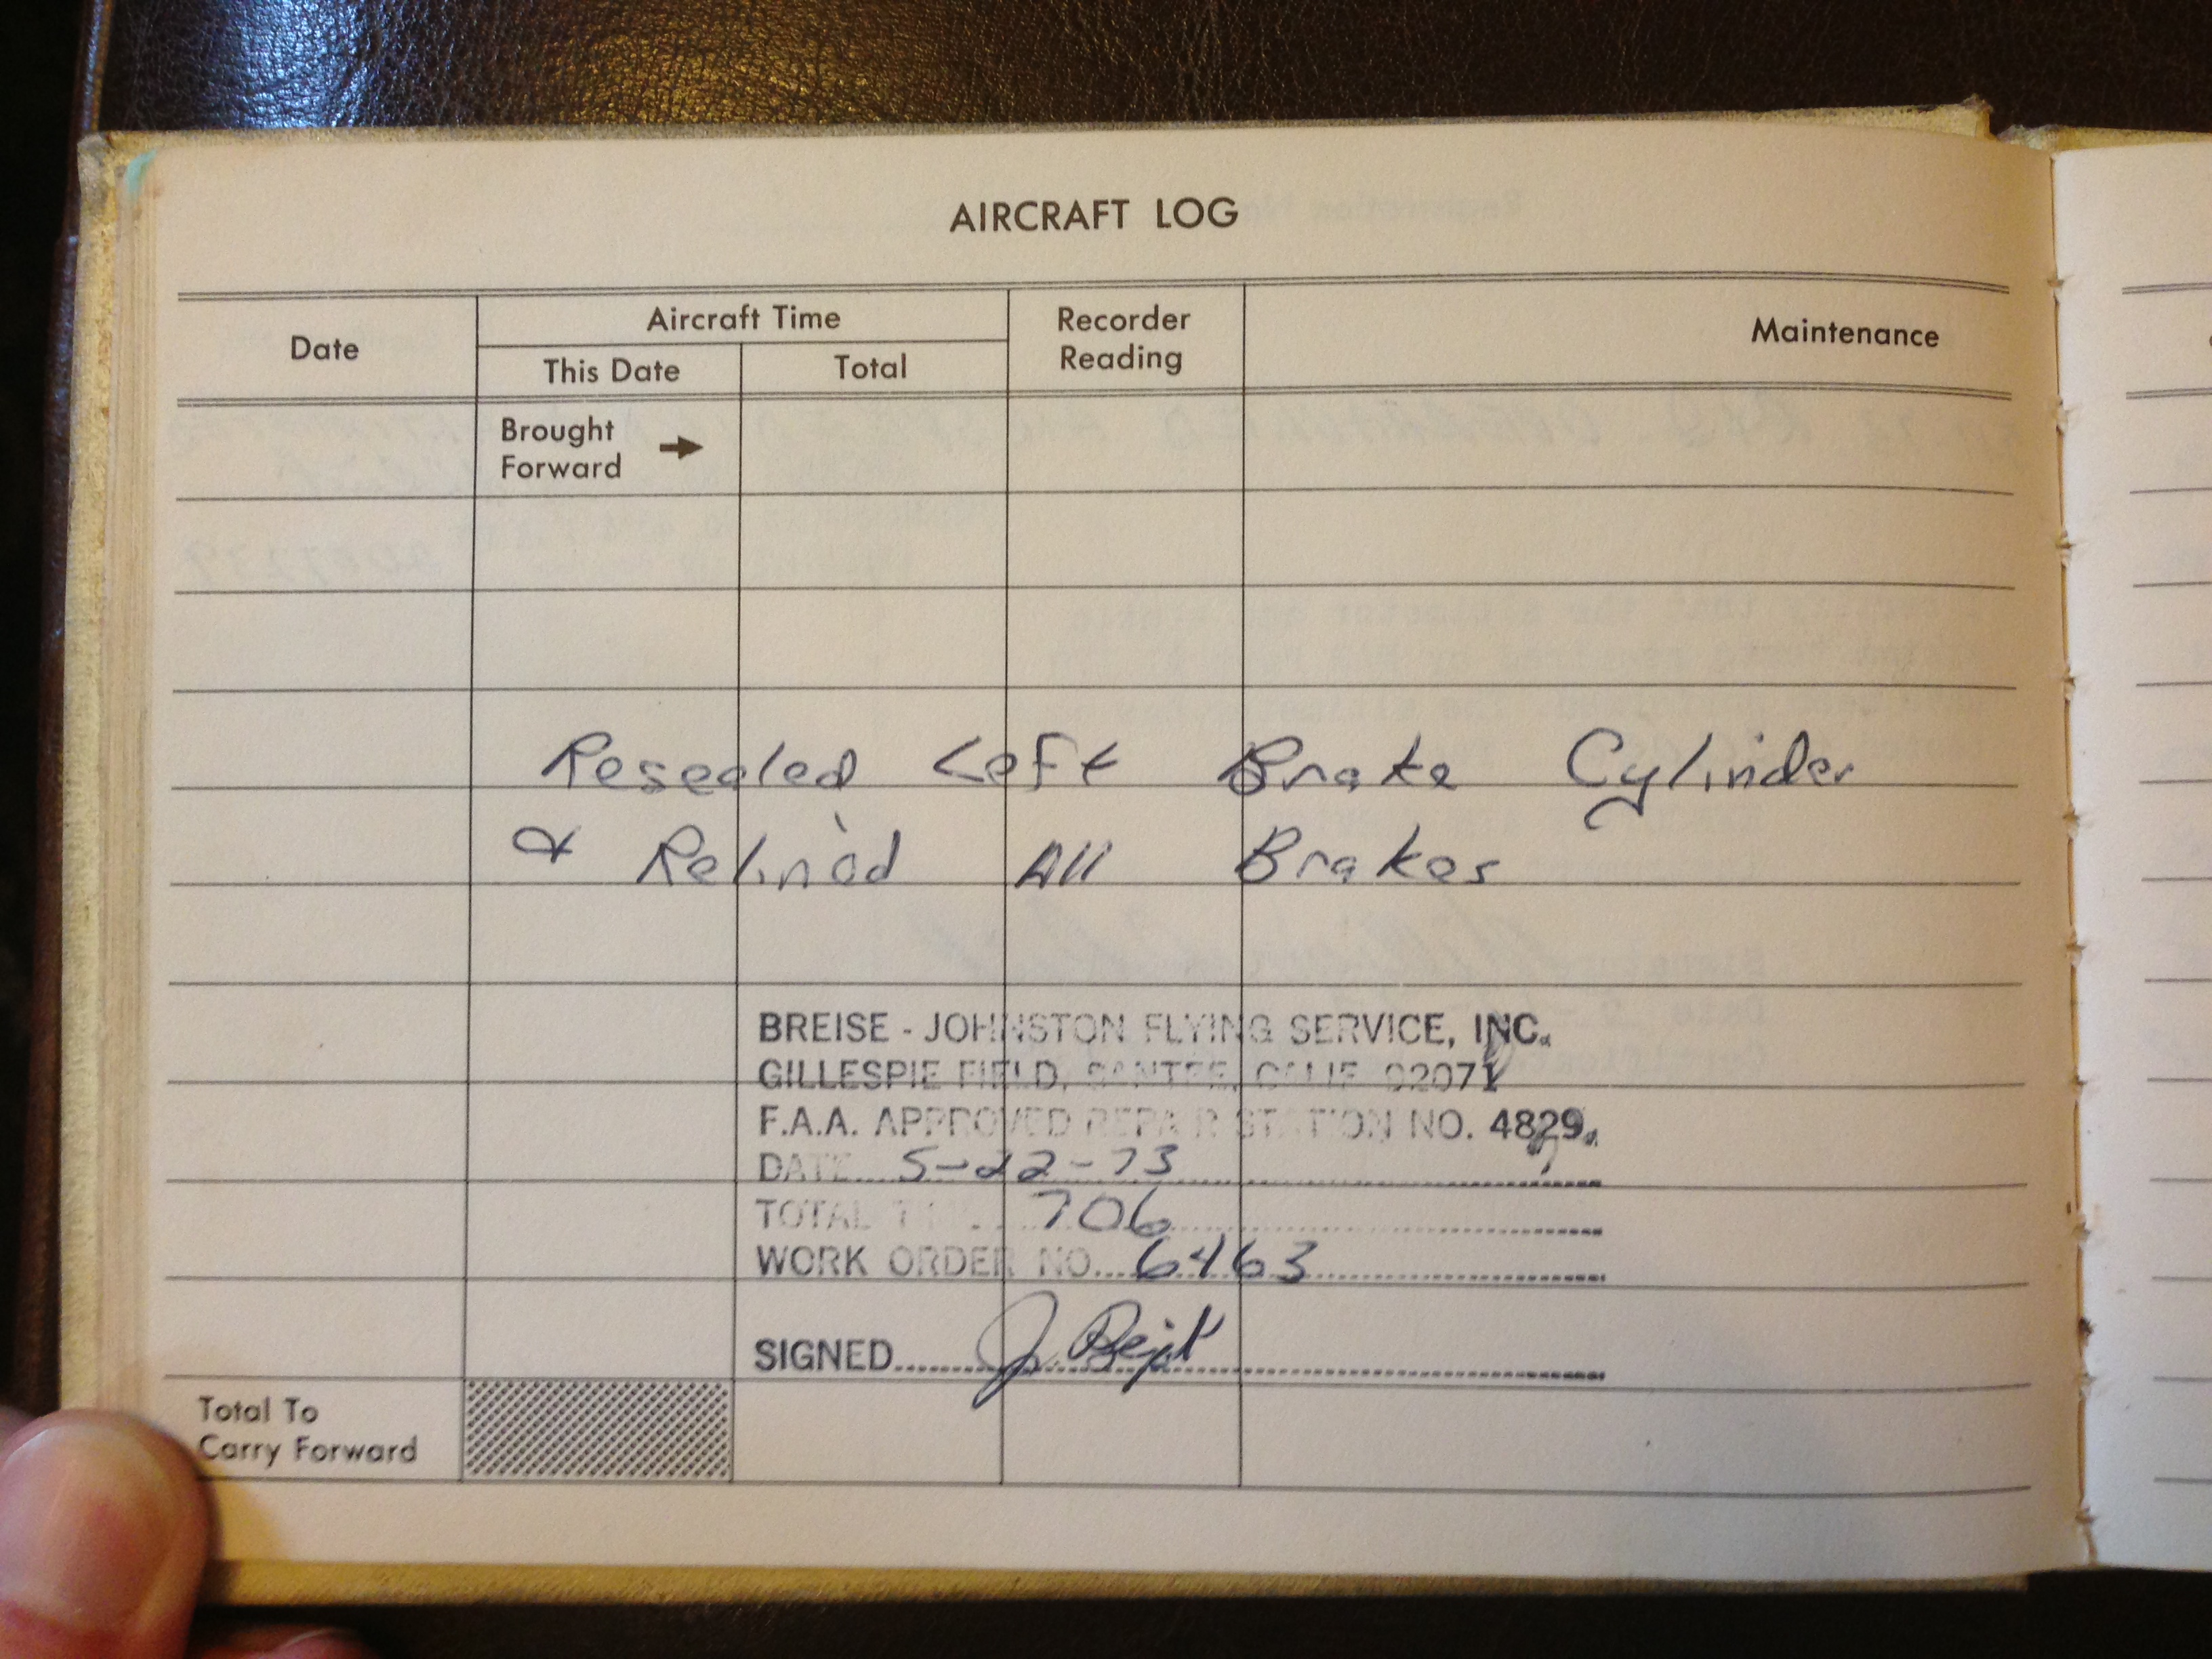 AIRCRAFT LOG
Date
Aircraft Time
This Date
Total
Recorder
Reading
Maintenance
Brought
Forward
Resealed Left Brake Cylinder
& Relined All Brakes
BREISE - JOHNSTON FLYING SERVICE, INC.
GILLESPIE FIELD, SANTEE, CALIF. 92071
F.A.A. APPROVED REPAIR STATION NO. 4829
DATE 5-22-73
TOTAL TIME 706
WORK ORDER NO. 6463
SIGNED J.
Total To
Carry Forward